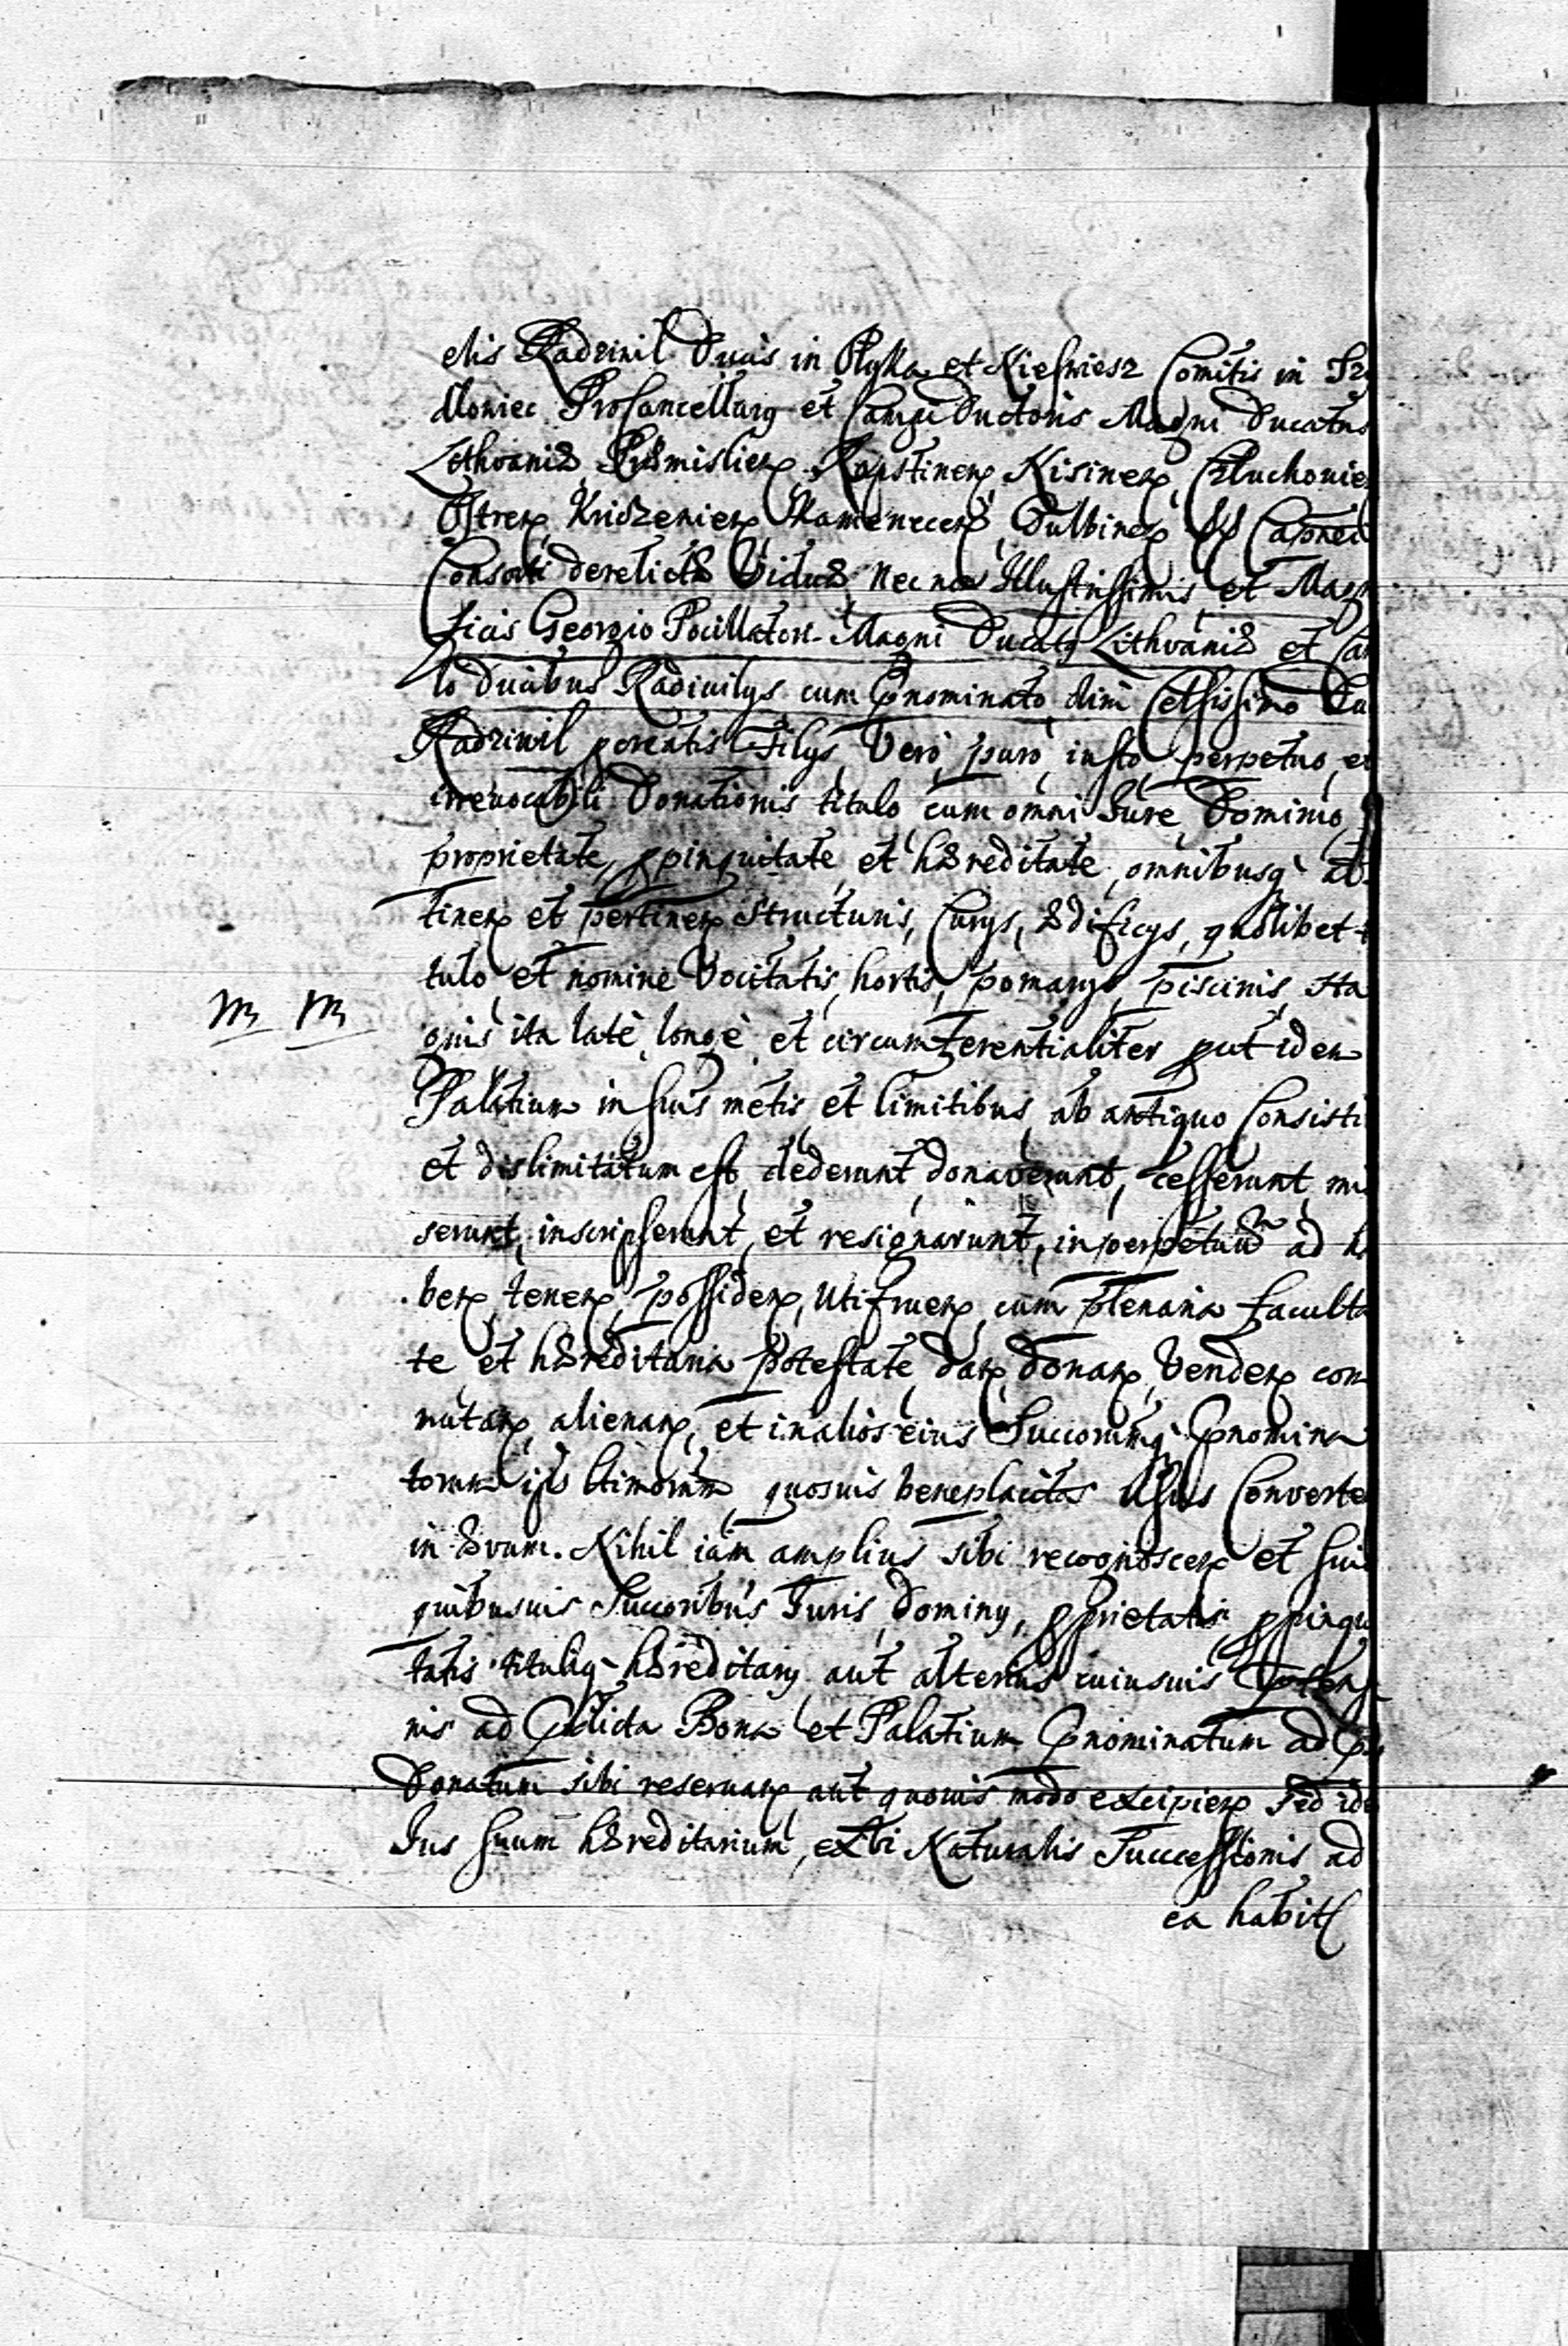 elis Radziwil Ducis in Olyka et Nieswiesz Comitis in Sz
dlowiec ProCancellarij et Campi Ductoris Magni Ducatus
Lithvaniæ Præmislien, Kisinen, Człuchovien
Ostren, Kamenecen, Dulbinen Capnei
Consorti derelictæ Viduæ nec non Illustrissimis et Mag
ficis Georgio Pocillatori Magni Ducatus Lithvaniæ et Ca
lo ducibus Radivilys cum prnominato olim Celsissimo Du
Radziwil pcreatis Filys, Vero, puro, iusto, perpetuo, et
irrevocabili Donationis titulo cum omni Iure, Dominio,
proprietate, ppinquitate, et hæreditate, omnibusq at
tinen et pertinen structuris, Curys, ædificys, quolibet t
tulo et nomine Vocitatis, hortis, pomarys, piscinis, sta
gnis ita late, longe, et circumferentialiter put idem
Palatium in suis metis et limitibus, ab antiquo Consisti
et dislimitatum est, dederunt, donaverunt, cesserunt, mi
serunt, inscripserunt, et resignarunt, in perpetuum ad h
ben, tenen, possiden, Utifruen, cum plenaria faculta
te et hæreditaria potestate, dan, donan, Venden, com
mutan, alienan, et in alios eius Succorumq prnomina
torum ltimorum quosuis beneplacitos Usus Converte
in ævum. Nihil iam amplius sibi recognoscen et sui
quibusuis Succoribus Iuris, Dominy, pprietatis ppinqu
tatis tituliq hæreditary aut alterius cuiusuis
nis ad prdicta Bona et Palatium prnominatum ad
Donatum sibi reseruan, aut quouis modo excipien sed id
Ius suum hæreditarium, ex Vi Naturalis Successionis ad
ea habit